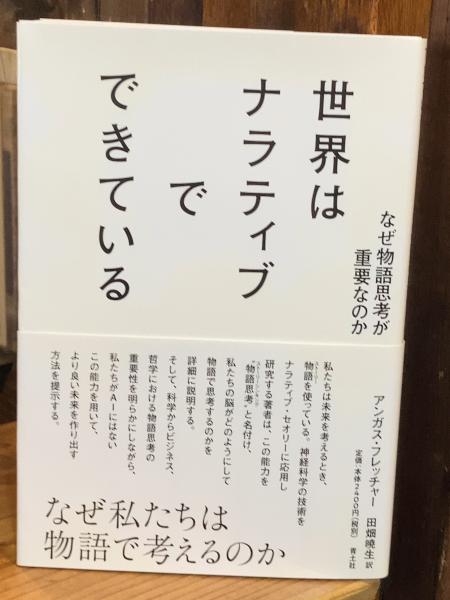 世界は
ナラティブ
で
できている
なぜ物語思考が
重要なのか
私たちは未来を考えるとき、
物語を使っている。神経科学の技術を
ナラティブ・セオリーに応用し
研究する著者は、この能力を
“物語思考”と名付け、
私たちの脳がどのようにして
物語で思考するのかを
詳細に説明する。
そして、科学からビジネス、
哲学における物語思考の
重要性を明らかにしながら、
私たちがAIにはない
この能力を用いて、
より良い未来を作り出す
方法を提示する。
アンガス・フレッチャー
田畑暁生 訳
定価：本体2400円（税別）
青土社
なぜ私たちは
物語で考えるのか